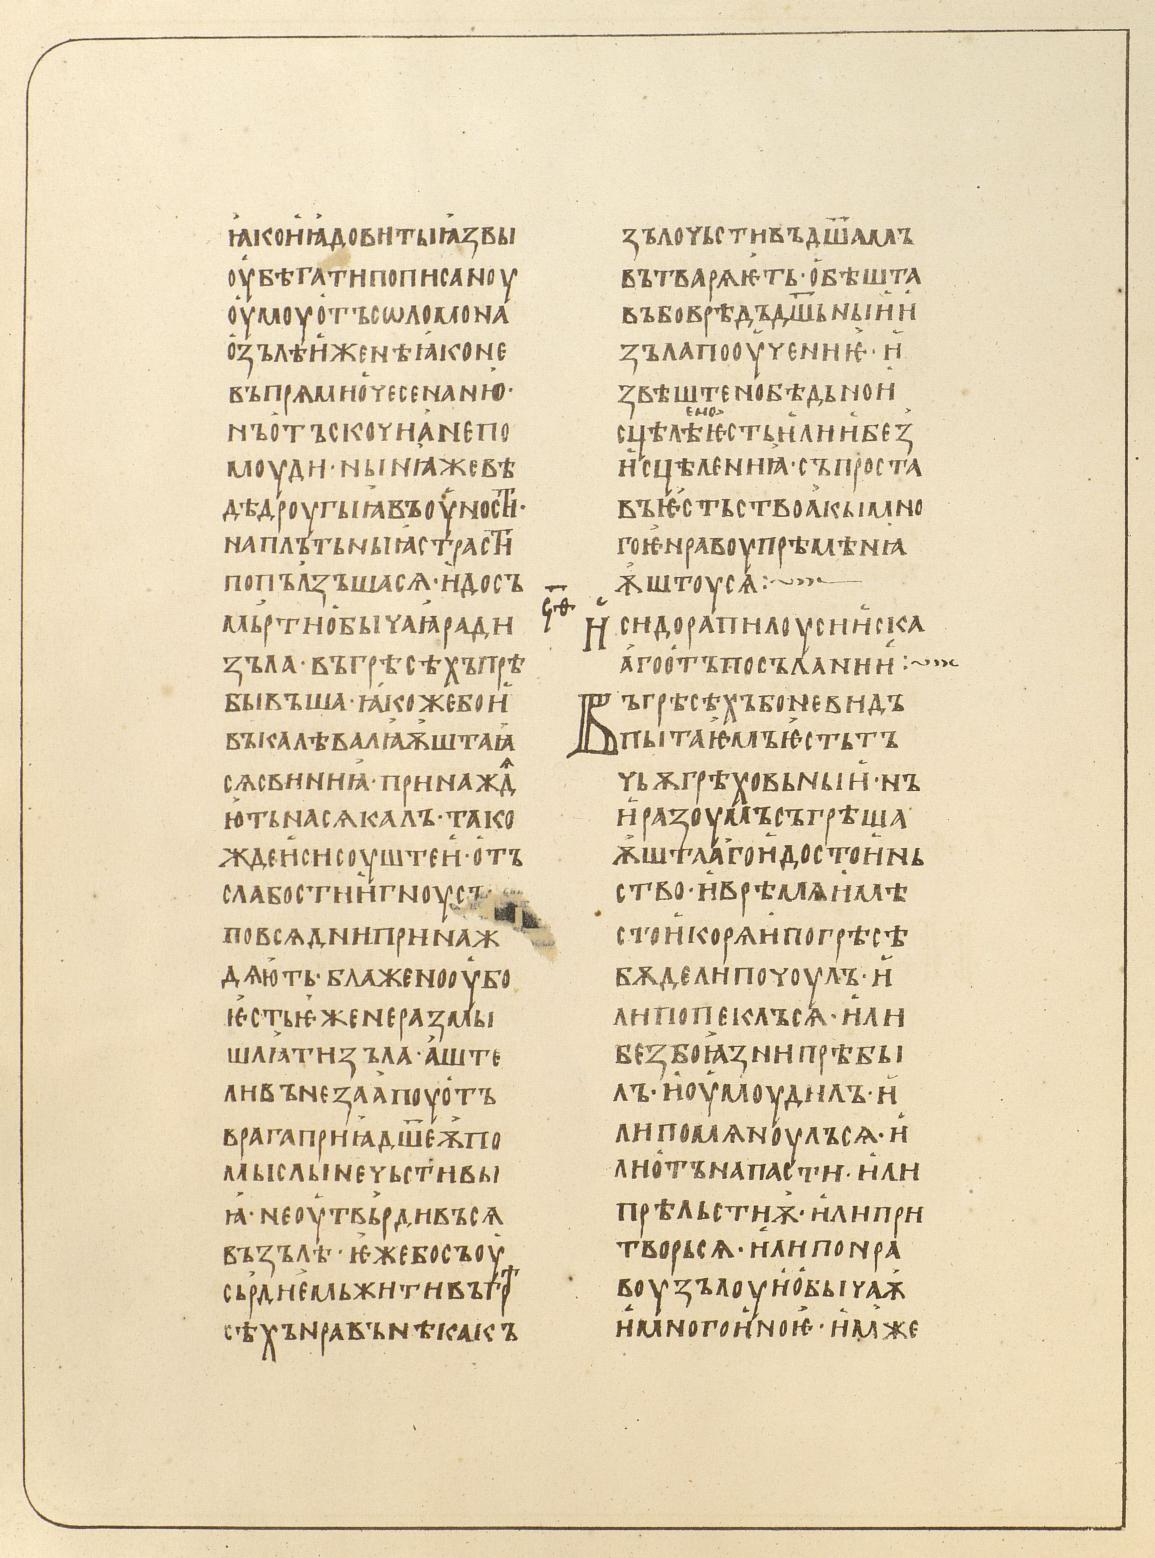 ꙗкоиꙗдовитыꙗзвы
оубѣгатипописаноу
оумоуотъсѡломона
озълѣиженѣꙗконе
въпрямиѹесенанню·
нъотъскоучꙗнепо
моуди·нынꙗжевѣ
дѣдроугыꙗвъоуности·
наплътьныꙗстрасти
попълзъшасѧ·идосъ
мьртиобычаꙗради
зъла·въгрѣсѣхъпрѣ
бывъша·ꙗкожебои
въкалѣвалꙗѭштаꙗ
сѧсвиниꙗ·принаждѧ
ютьнасѧкалъ·тако
ждеисисоуштеи·отъ
слабостиигноусъ
повсѧднипринаж
дѧють·блаженооубо
ѥстьѥженеразмы
шлꙗтизъла·аште
ливънезаапоуотъ
врагаприꙗдш҃еѭпо
мыслынечьстивы
ꙗ·неоутвьрдивъсѧ
възълѣ·ѥжебосъоу
сьрдиѥмьжитивъгрѣ
сѣхънравънѣкакъ
зълочьстивъдш҃амъ
вътварѧѥть·обѣшта
въбоврѣдъдш҃ьныии
зълапооученнѥ·и
звѣштенобѣдьнои
сцѣлѣеноѥстьилиибез
исцѣлениꙗ·съпроста
въѥстьствоꙗкымно
гоѥнравоупрѣмѣнꙗ
ѭштоусѧ:~
с҃ѳ
исидорапилоусииска
агоотъпосъланнии:~
Въгрѣсѣхъбоневидъ
пытаѥмъѥстьтъ
чьѭгрѣховьныи·нъ
иразоумъсъгрѣша
ѭштаагоидостоинь
ство·иврѣмѧимѣ
стоикорѧипогрѣсѣ
бѫделипочоулъ·и
липопеклъсѧ·или
безбоꙗзнипрѣбы
лъ·иоумоудилъ·и
липомѧноулъсѧ·и
лиотънапасти·или
прѣльстиѭ·илипри
творьсѧ·илипонра
воузълоуиобычаѭ
имногоиноѥ·имже